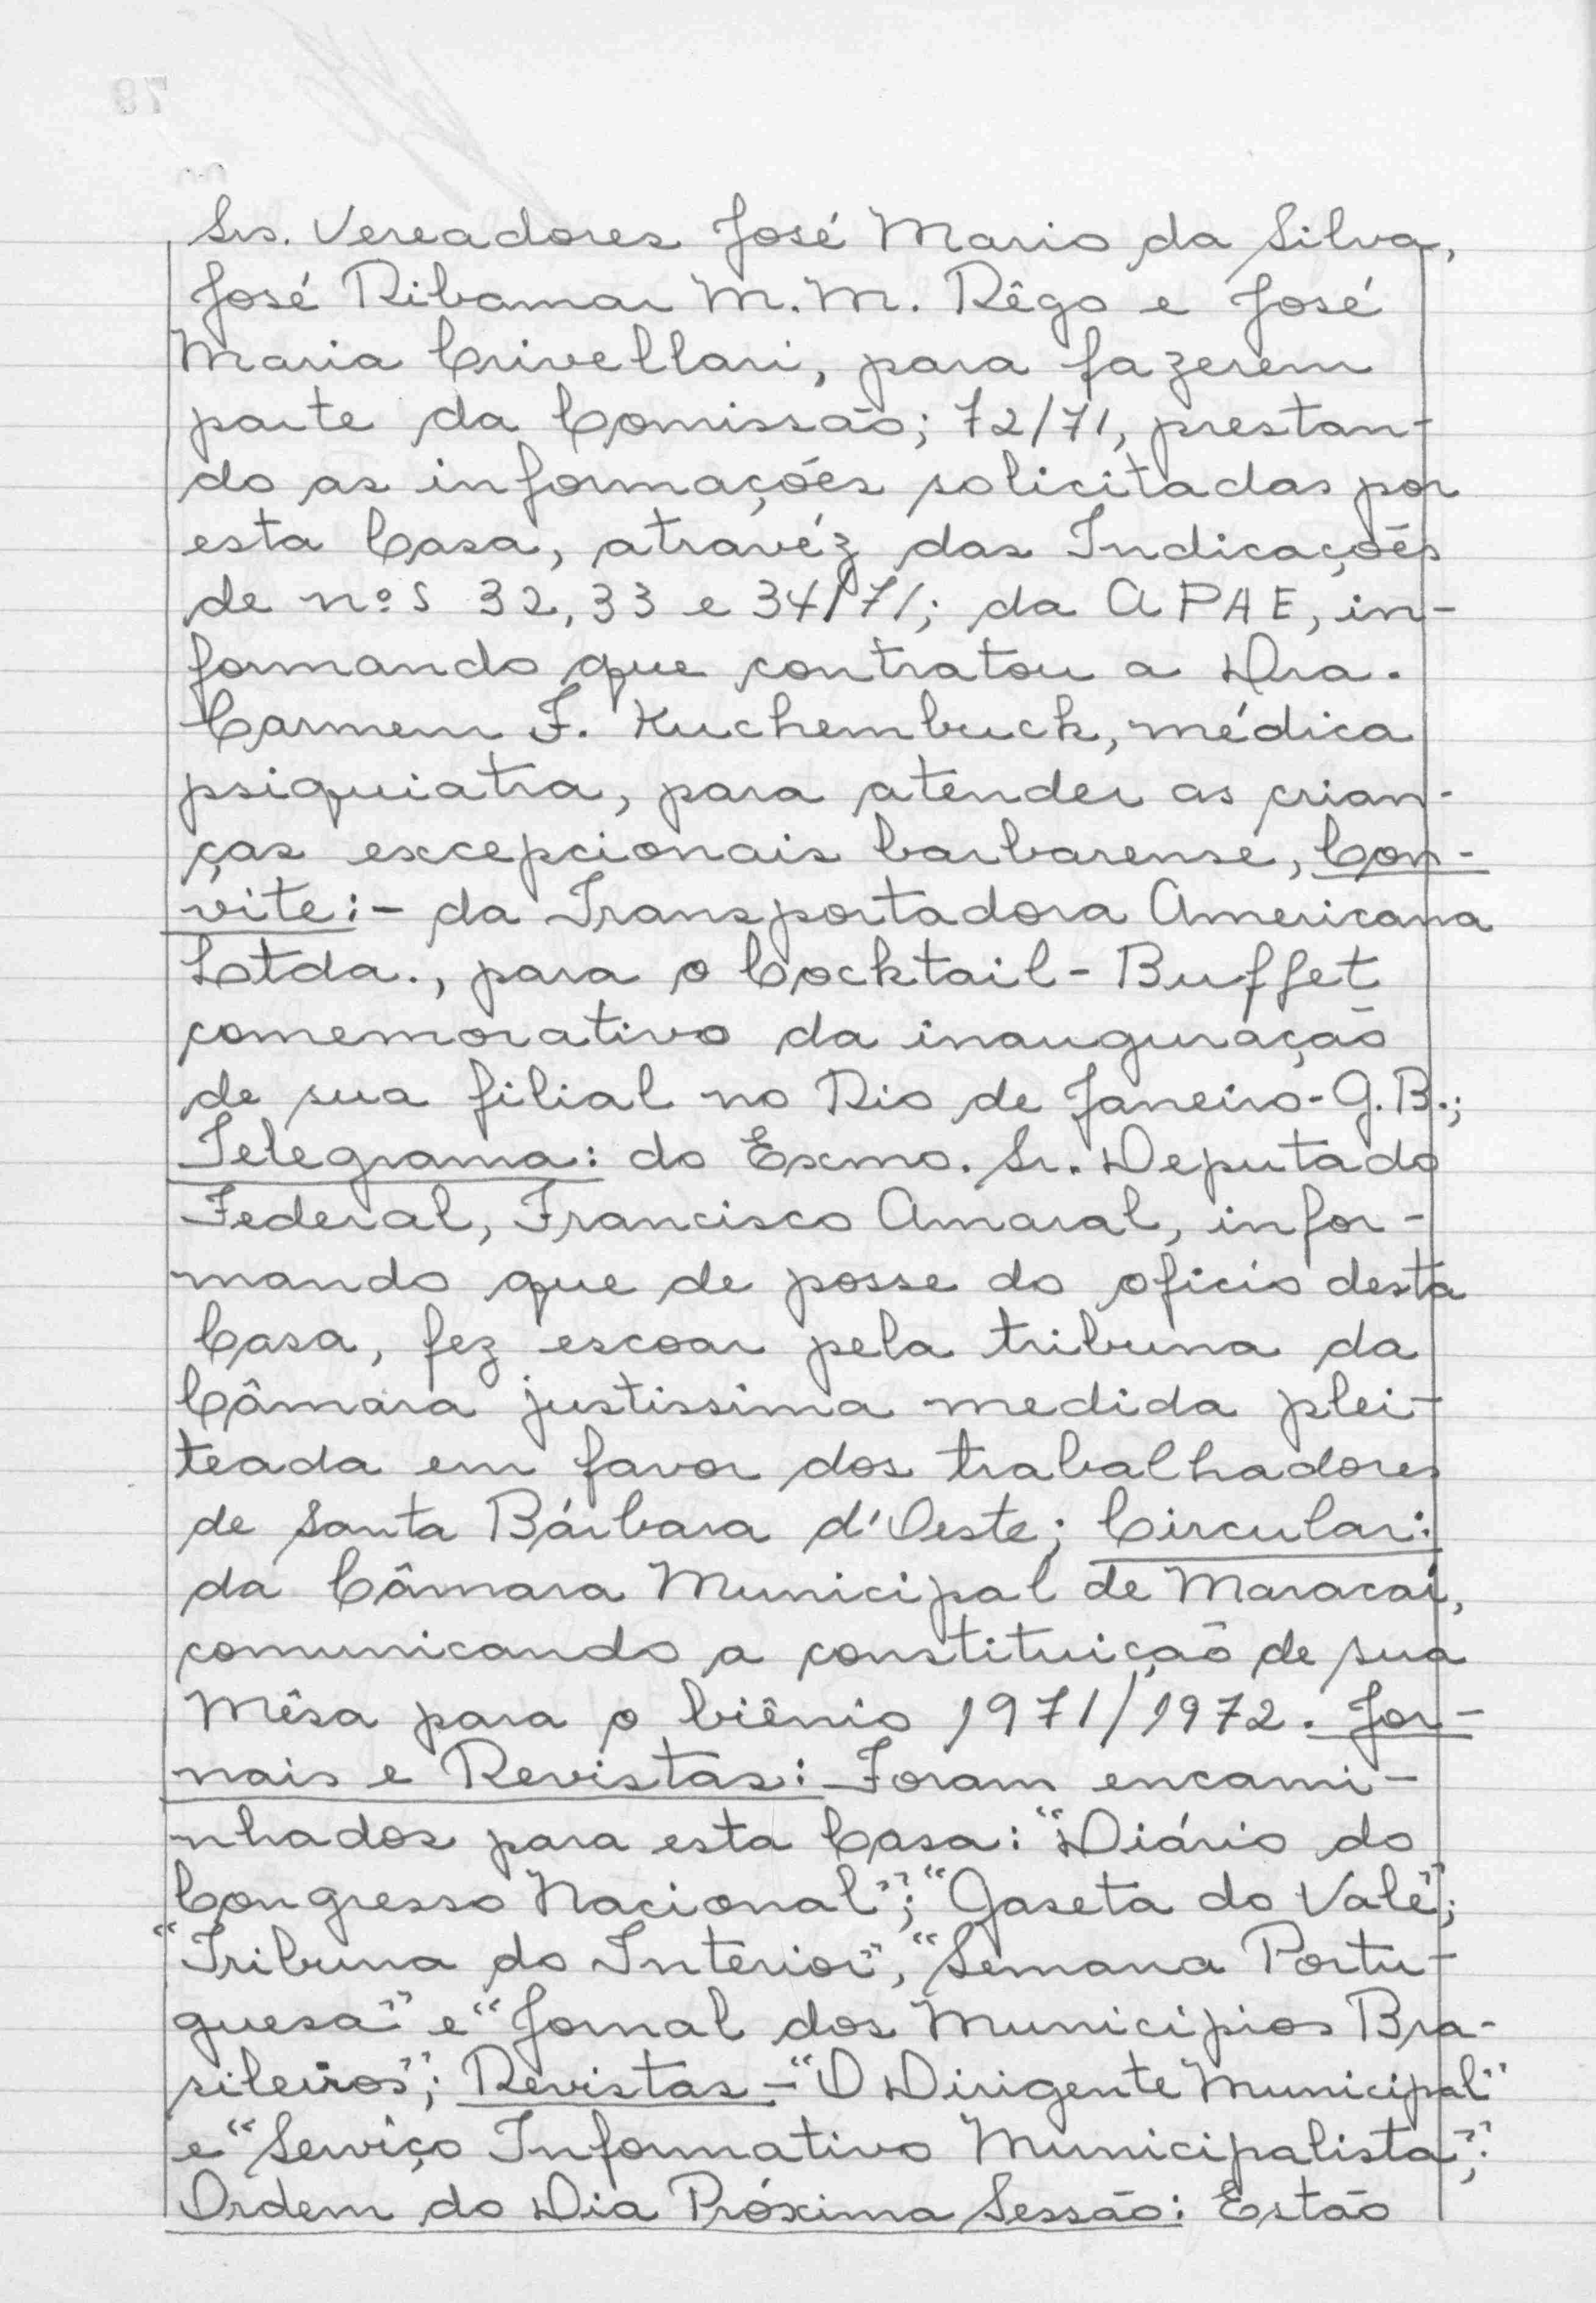 Srs. Vereadores José Mario da Silva,
José Ribamar M. M. Rêgo e José
Maria Crivellari, para fazerem
parte da Comissão; 72/71, prestan-
do as informações solicitadas por
esta Casa, atravéz das Indicações
de nºs 32, 33 e 34/71; da APAE, in-
formando que contratou a Dra.
Carmem F. Kuchembuck, médica
psiquiatra, para atender as crian-
ças excepcionais barbarense, Con-
vite:- da Transportadora Americana
Ltda., para o Cocktail-Buffet
comemorativo da inauguração
de sua filial no Rio de Janeiro-G.B.;
Telegrama: do Exmo. Sr. Deputado
Federal, Francisco Amaral, infor-
mando que de posse do oficio desta
Casa, fez escoar pela tribuna da
Câmara justissima medida plei-
teada em favor dos trabalhadores
de Santa Bárbara d'Oeste; Circular:
da Câmara Municipal de Maracaí,
comunicando a constituição de sua
Mêsa para o biênio 1971/1972. Jor-
nais e Revistas: Foram encami-
nhados para esta Casa: "Diário do
Congresso Nacional"; "Gaseta do Vale";
"Tribuna do Interior", "Semana Portu-
guesa" e "Jornal dos Municipios Bra-
sileiros"; Revistas - "O Dirigente Municipal"
e "Serviço Informativo Municipalista";
Ordem do Dia Próxima Sessão: Estão